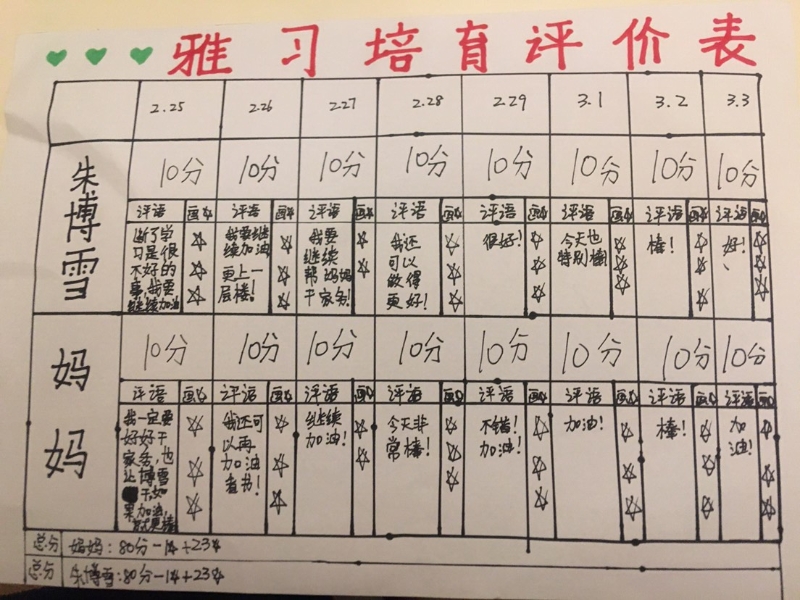 雅习培育评价表
2.25 2.26 2.27 2.28 2.29 3.1 3.2 3.3
朱博雪
10分 10分 10分 10分 10分 10分 10分 10分
评语 画☆ 评语 画☆ 评语 画☆ 评语 画☆ 评语 画☆ 评语 画☆ 评语 画☆ 评语 画☆
断了学
习是很
不好的
事,我要
继续加油
我要继
续加油
更上一
层楼!
我要
继续
帮妈妈
干家务!
我还
可以
做得
更好!
很好!
今天也
特别棒!
棒!
好!
妈妈
10分 10分 10分 10分 10分 10分 10分 10分
评语 画☆ 评语 画☆ 评语 画☆ 评语 画☆ 评语 画☆ 评语 画☆ 评语 画☆ 评语 画☆
我一定要
好好干
家务,也
让博雪
干,如
果加油,
就更棒
我还可
以再
加油
看书!
继续
加油!
今天非
常棒!
不错!
加油!
加油!
棒!
加
油!
总分 妈妈:80分-1☆+23☆
总分 朱博雪:80分-1☆+23☆